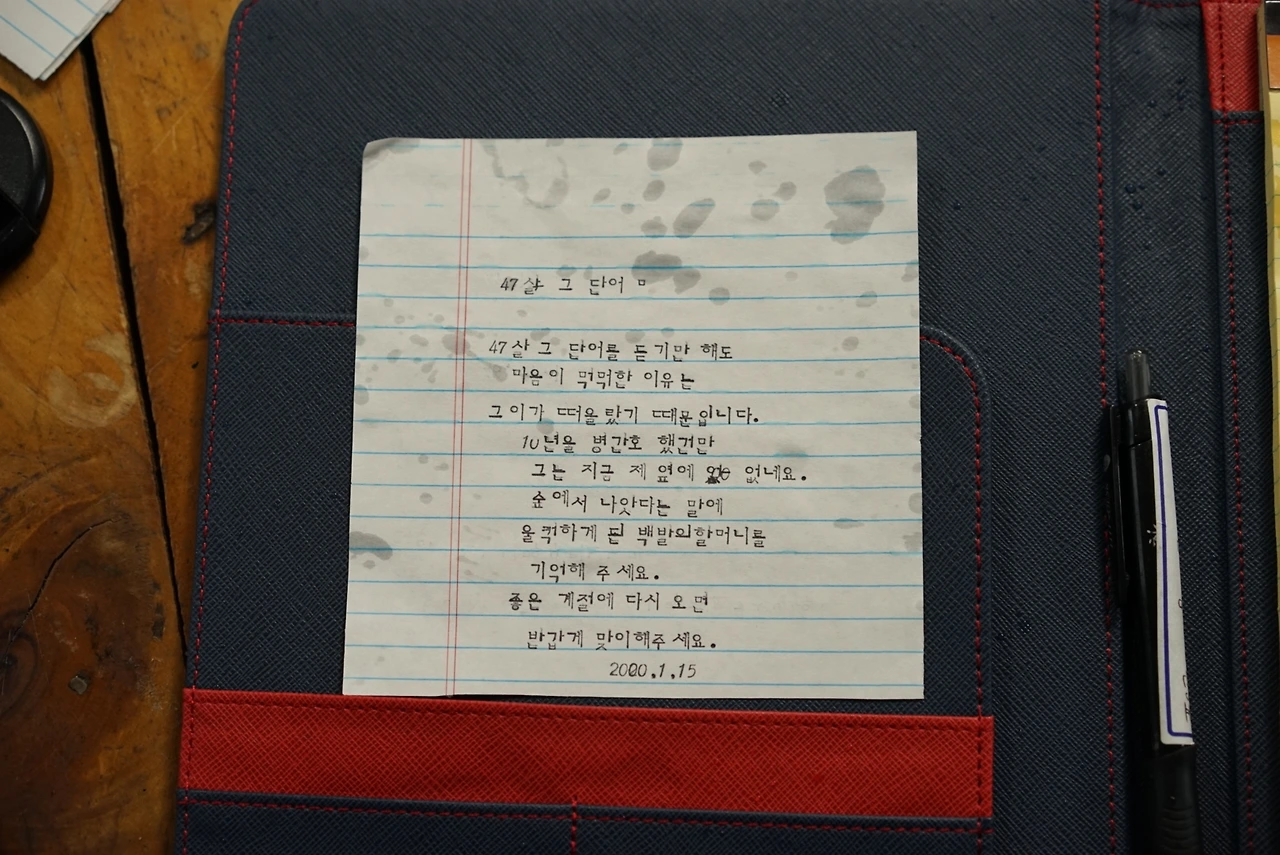 47살 그 단어 ㅁ
47살 그 단어를 듣기만 해도
마음이 먹먹한 이유는
그이가 떠올랐기 때문입니다.
10년을 병간호 했건만
그는 지금 제 옆에 없네요.
숲에서 나앗다는 말에
울컥하게 된 백발의할머니를
기억해 주세요.
좋은 계절에 다시 오면
반갑게 맞이해주세요.
2020.1.15